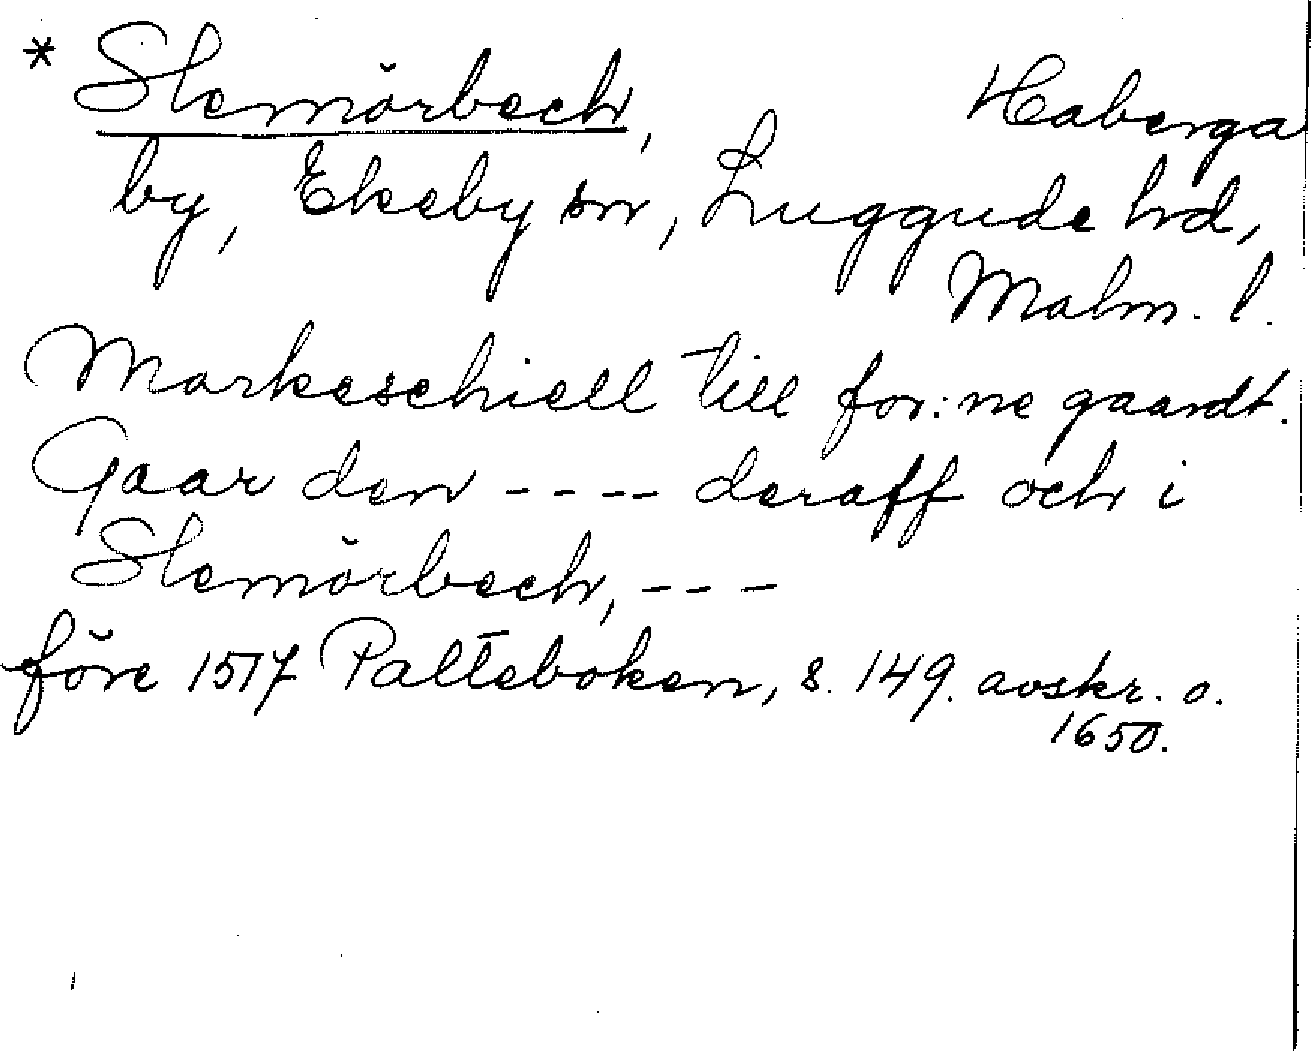 * Slemörbech, Haberga
by, Ekeby sn, Luggude hd,
Malm. l.
Markeschiell till for:ne gaardt.
Gaar den ---- deraff och i
Slemörbech, ---
före 1517 Palteboken, s. 149. avskr. o.
1650.